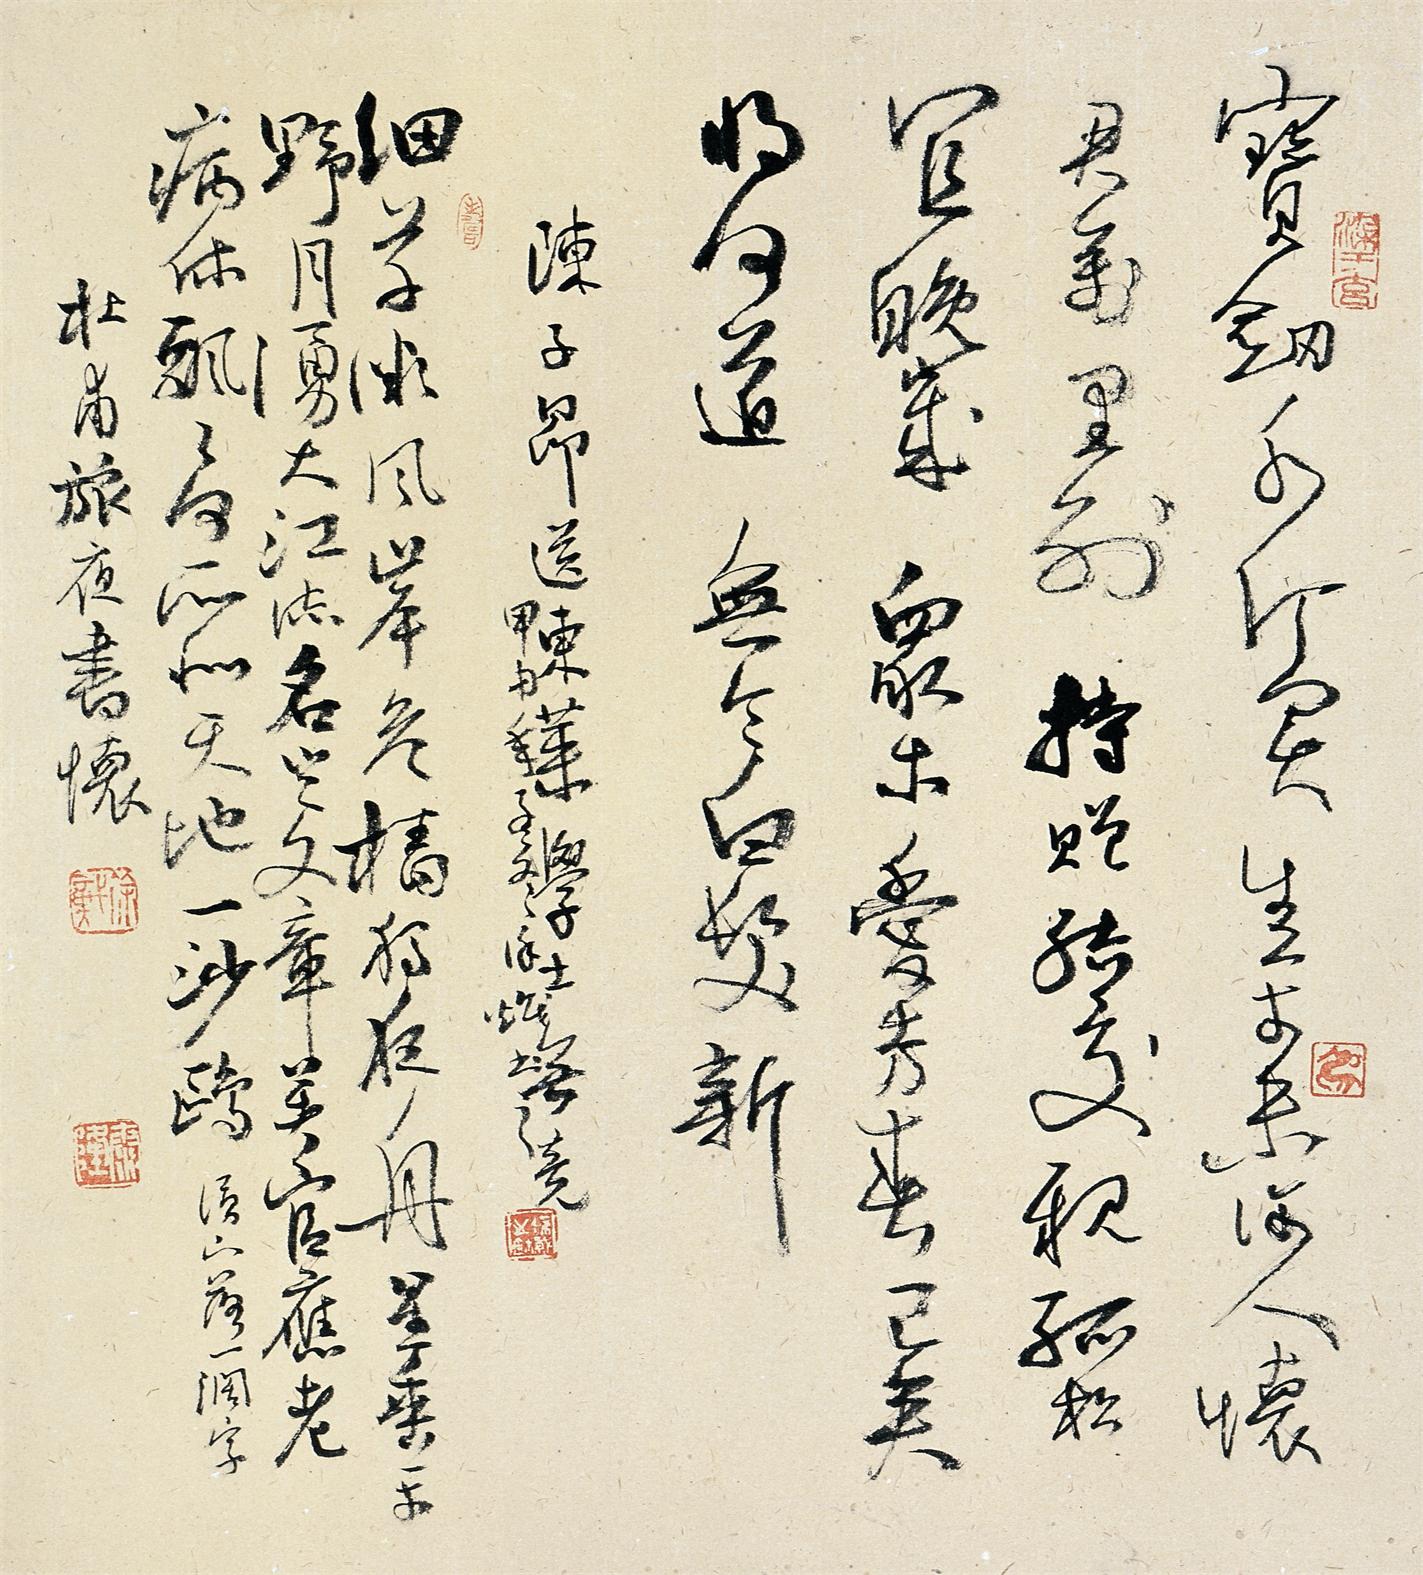 寶劍千金買生平未許人懷
君萬里別持贈結交親孤松
宜晚歲眾木愛芳春已矣
將何道無令白髮新
陳子昂送東萊學士無競
細草微風岸危檣獨夜舟星垂平
野月湧大江流名豈文章著官應老
病休飄飄何所似天地一沙鷗 落一闊字
杜甫旅夜書懷